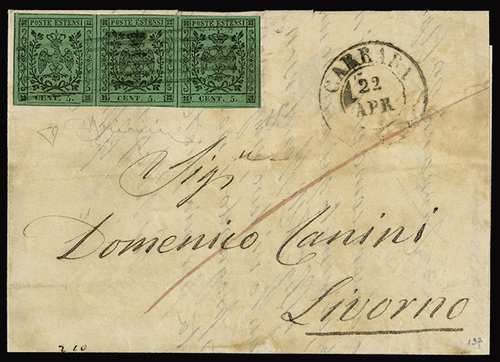 POSTE ESTENSI POSTE ESTENSI POSTE ESTENSI
CENT. 5. CENT. 5. CENT. 5.
CARRARA
22
APR
Sig.r
Domenico Canini
Livorno
210
137